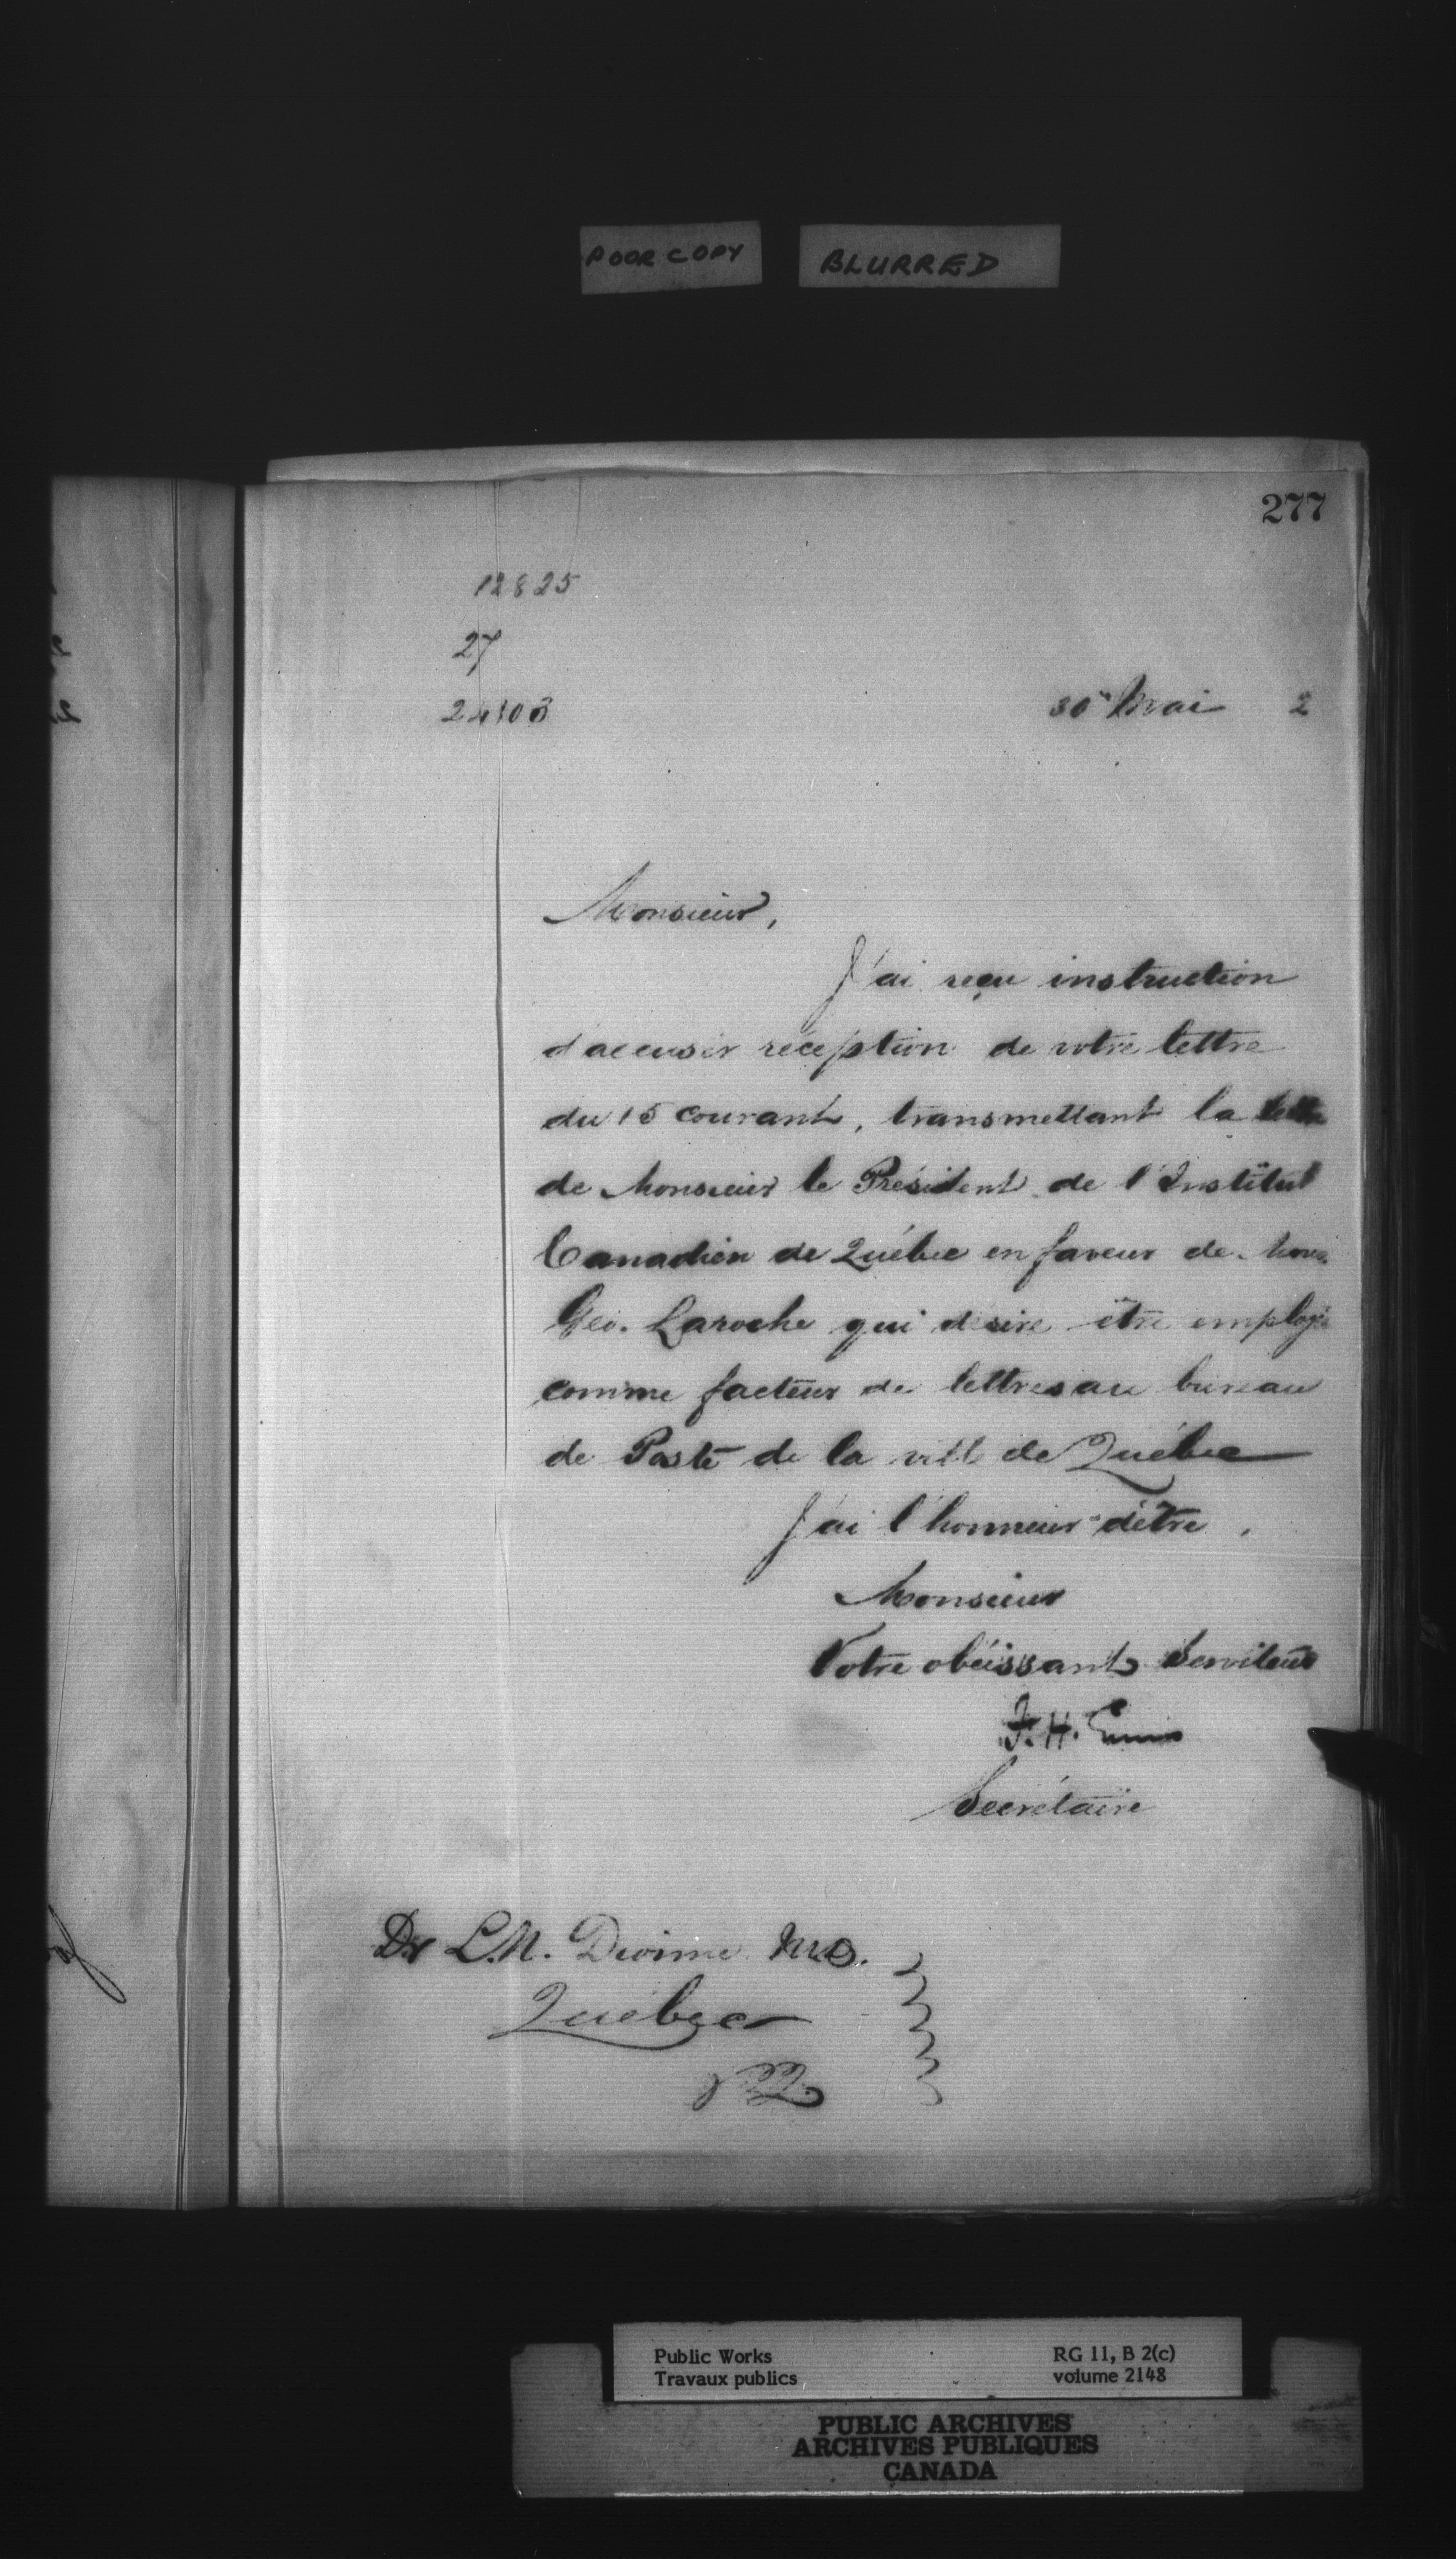 POOR COPY BLURRED
277
12825
27
24103
30 Mai 2
Monsieur,
J'ai reçu instruction
d'accuser réception de votre lettre
du 15 courant, transmettant la lettre
de Monsieur le Président de l'Institut
Canadien de Québec en faveur de Mons.
Geo. Laroche qui désire être employé
comme facteur de lettres au bureau
de Poste de la ville de Québec
J'ai l'honneur d'être,
Monsieur
Votre obéissant Serviteur
F. H. Ennis
Secrétaire
Dr L.N. M.D.
Québec
PQ
Public Works
Travaux publics
RG 11, B 2(c)
volume 2148
PUBLIC ARCHIVES
ARCHIVES PUBLIQUES
CANADA